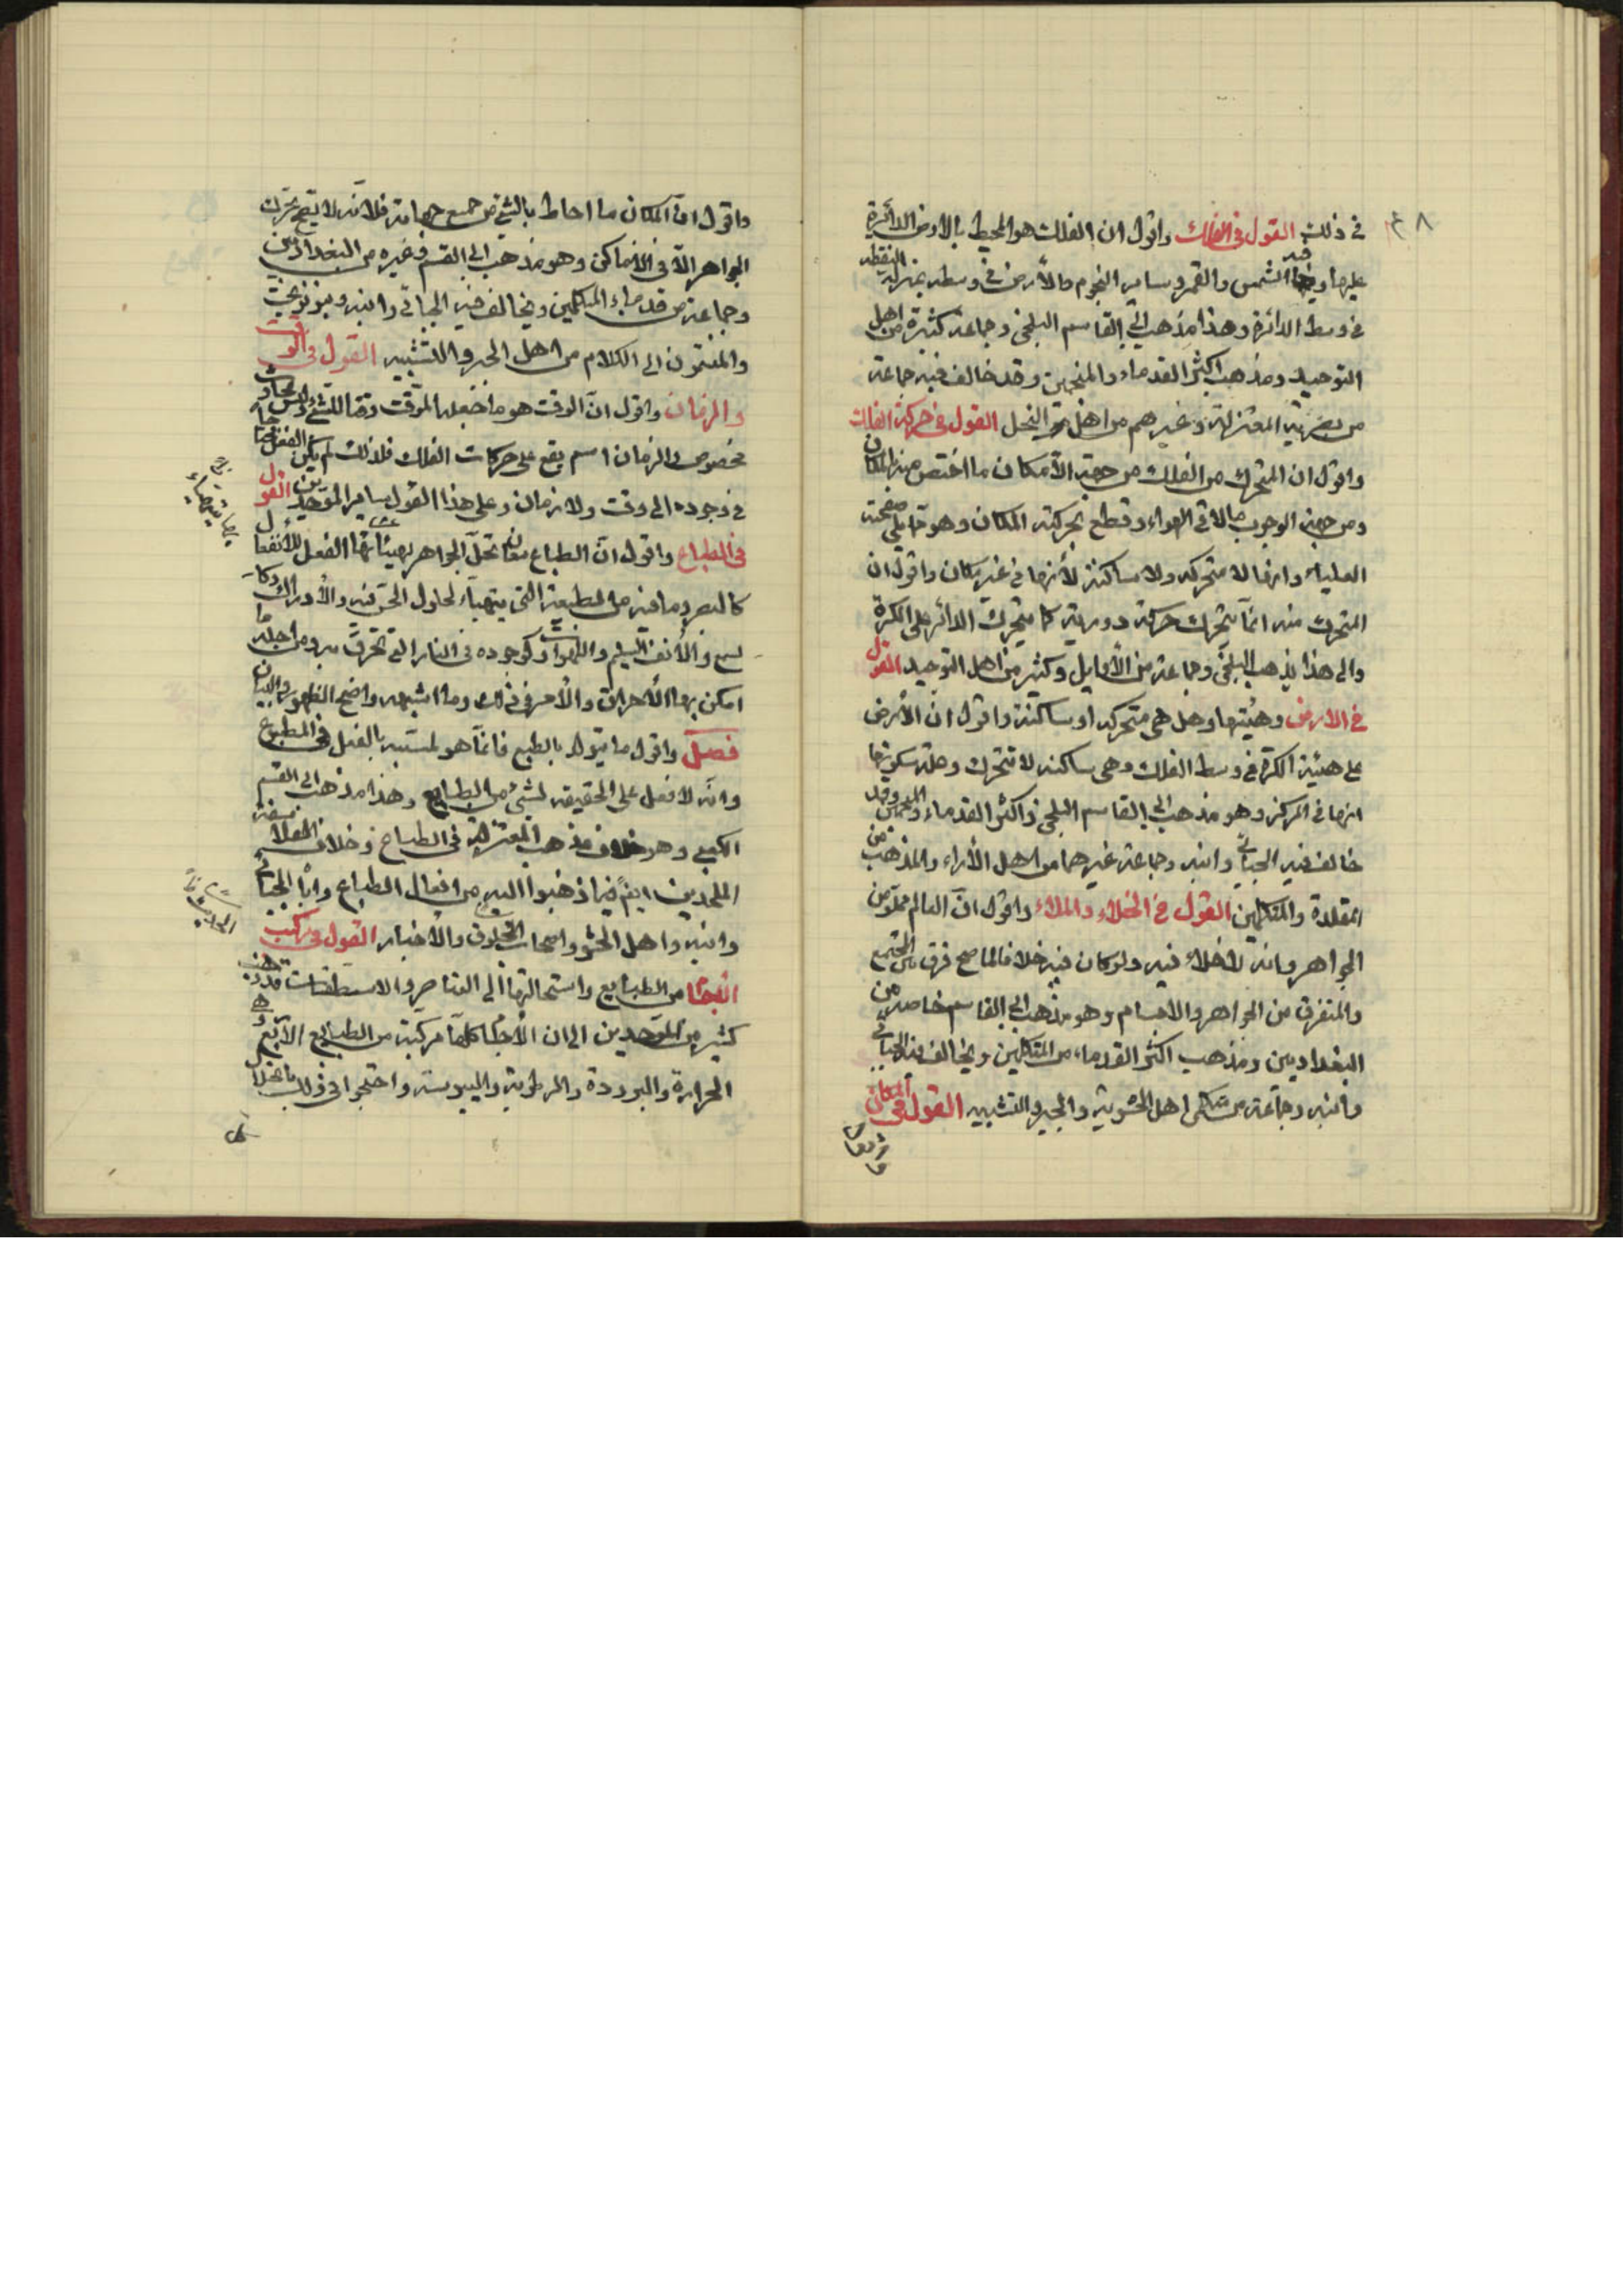 في ذلك القول في الفلك واقول ان الفلك هو المحيط بالارض الدائرة
عليها وفيه الشمس والقمر وساير النجوم والأرض في وسطه بمنزلة النقطة
في وسط الدائرة وهذا مذهب ابي القاسم البلخي وجماعة كثيرة من اهل
التوحيد ومذهب اكثر القدماء والمنجمين وقد خالف فيه جماعة
من بصرية المعتزلة وغيرهم من اهل النحل القول في حركة الفلك
واقول ان المتحرك من الفلك من جهة الأمكان ما اختص منه المكان
ومن جهة الوجوب ما لاقى الهواء وقطع بحركته المكان وهو ما يلي صفحته
العليا وانها لا متحركه ولا ساكنة لأنها في غير مكان واقول ان
المتحرك منه انمّا يتحرك حركة دورية كما يتحرك الدائر على الكرة
والى هذا يذهب البلخي وجماعة من الأوايل وكثير من اهل التوحيد القول
في الارض وهيئتها وهل هي متحركه او ساكنة واقول ان الأرض
على هيئة الكرة في وسط الفلك وهي ساكنه لا تتحرك وعلة سكونها
انها في المركز وهو مذهب ابي القاسم البلخي واكثر القدماء والمنجمين وقد
خالف فيه الجبائي وابنه وجماعة غيرهما من اهل الأراء والمذهب من
المقلدة والمتكلمين القول في الخلاء والملاء واقول انّ العالم مملوّ من
الجواهر وانه لأخلاء فيه ولو كان فيه خلا فالما صح فرق بين المجتمع
والمتفرق من الجواهر والاجسام وهو مذهب ابي القاسم خاصة من
البغداديين ومذهب اكثر القدماء من المتكلمين ويخالف فيه الجبائي
وابنه وجماعة من متكلمي اهل الحشوية والجبر والتشبيه القول في المكان
واقول انّ المكان ما احاط بالشيء من جميع جهاته فلأنه لا يصح تحرك
الجواهر الاّ في الأماكن وهو مذهب ابي القسم وغيره من البغداديين
وجماعة من قدماء المتكلمين ويخالف فيه الجبائي وابنه وبنو نوبخت
والمنتمون الى الكلام من اهل الجبر والتشبيه القول في الوقت
والزمان واقول انّ الوقت هو ما جعله الموقت وقتا للشيء وليس بحادث
مخصوص والزمان اسم يقع على حركات الفلك فلذلك لم يكن الفعل محتاجا
في وجوده الى وقت ولا زمان وعلى هذا القول ساير الموحدين القول
في الطباع واقول انّ الطباع معان تحلّ الجواهر يهيئ بها الفعل للأنفعال
كالبصر وما فيه من الطبيعة التي يتهيأ لحلول الحس فيه والأدراك وكا
لسمع والأنف السليم واللهوات وكوجوده في النار التي تحرق به وما جله
امكن بها الأحراق والأمر في ذلك وما اشبهه واضح الظهور والبيان
فصل واقول ما يتولد بالطبع فانمّا هو لمسببه بالفعل في المطبوع
وانه لا فعل على الحقيقه لشيء من الطبايع وهذا مذهب ابي القسم
الكعبي وهو خلاف مذهب المعتزلة في الطباع وخلاف الفلاسفة
الملحدين ايضً فيما ذهبوا اليه من افعال الطباع وابا الجبائي
وابنه واهل الحشو واصحاب المخلوق والأخبار القول في تركيب
الأجسام من الطبايع واستحالتها الى العناصر والاسطقسات قد ذهب
كثير من الموحدين الى ان الأجسام كلها مركبة من الطبايع الأربع وهي
الحرارة والبرودة والرطوبة واليبوسة واحتجوا في ذلك بانحلال
٤٨
كل